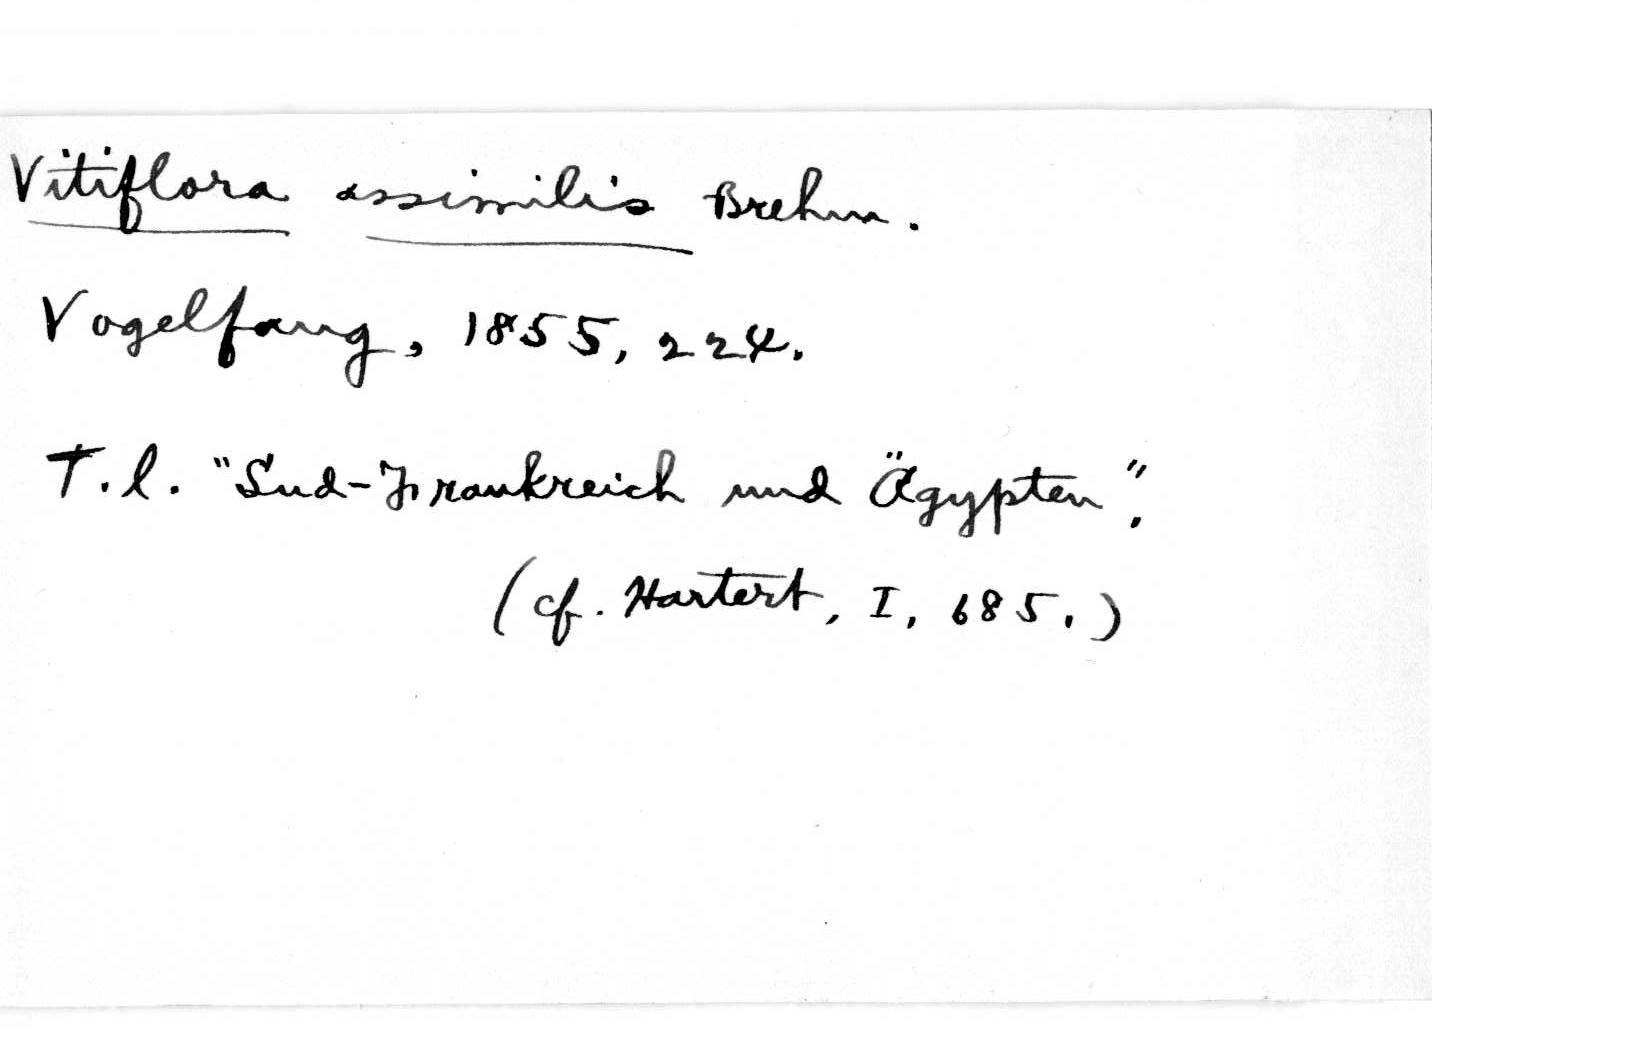 Vitiflora assimilis Brehm.
Vogelfang, 1855, 224.
T.l. "Sud-Frankreich und Ägypten".
(cf. Hartert, I, 685.)